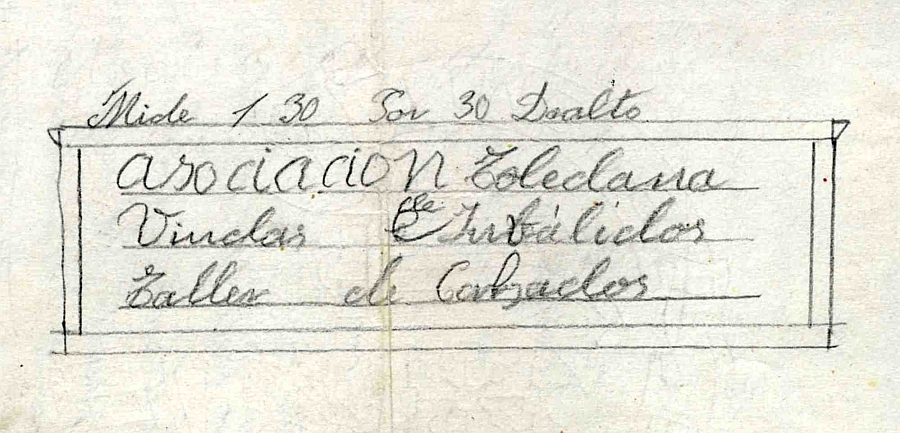 Mide 1 30 Por 30 Dealto
asociación Toledana
Viudas e Inbálidos
Taller de Calzados